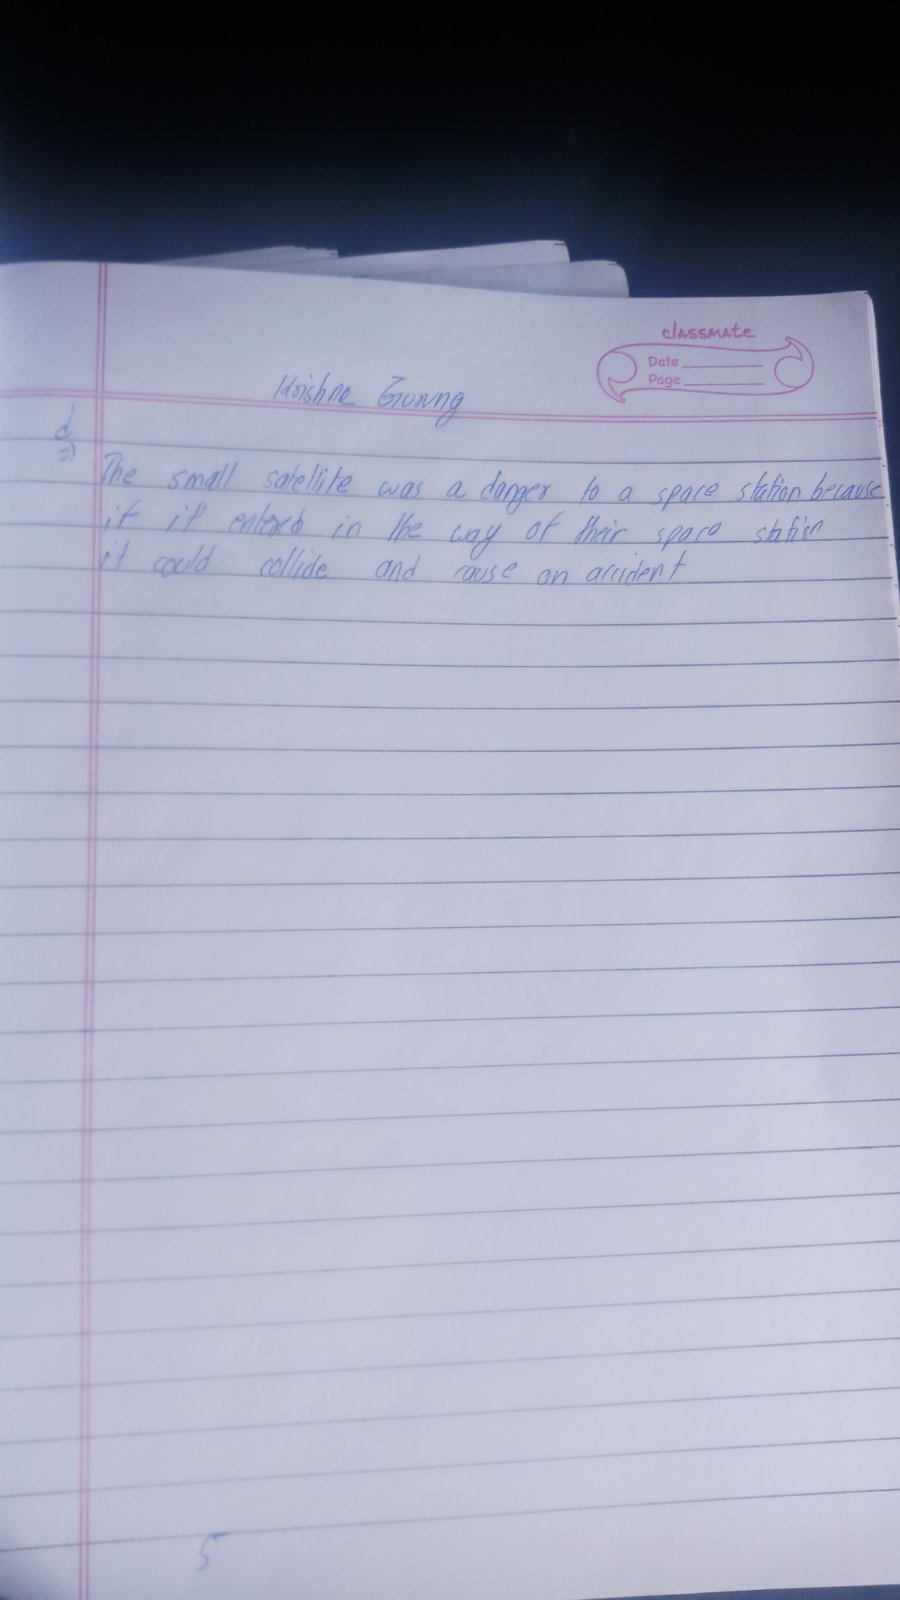 classmate
Date
Page
Krishna Gurung
d
=)
The small satellite was a danger to a space station because
if it entered in the way of their space station
it could collide and cause an accident
5